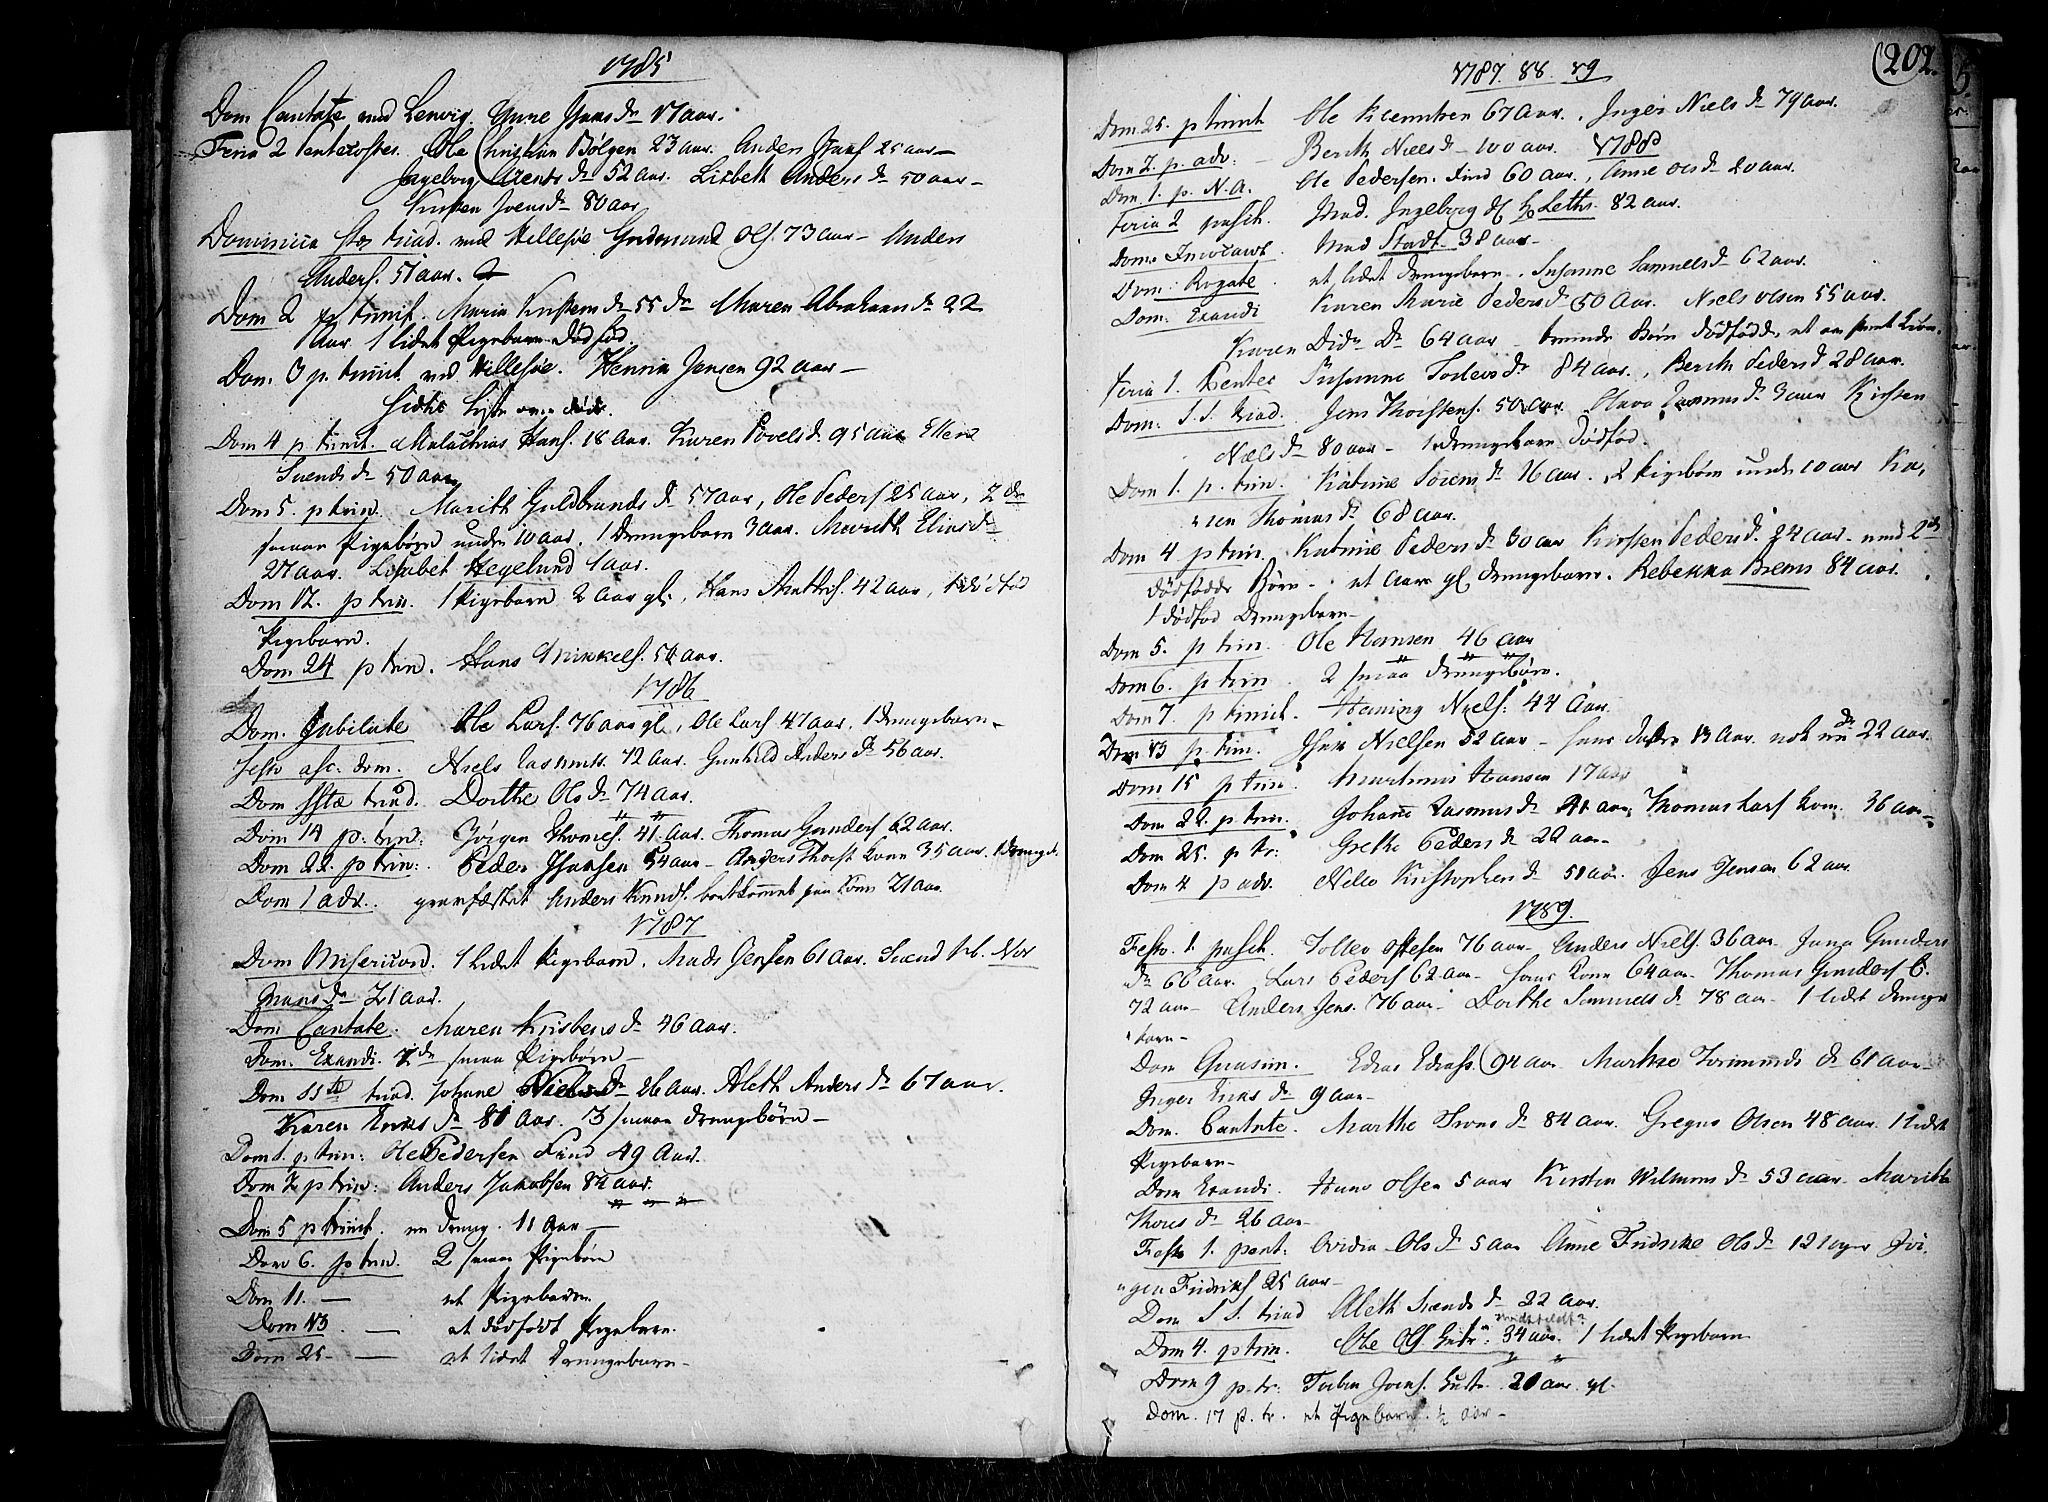 1785
Dom Cantate ved Lenvig. Anne Jansdr 17 aar.
Feria 2 Pentecostes. Ole Christian Bølgen 23 aar. Anders Hans. 25 aar –
Ingeborg Arentsdr 52 aar. Lisbeth Andersdr 50 aar –
Kirsten Joensdr 80 aar
Dominica trind. ved Hillesøe Gudmund Ols. 73 aar – Anders
Anders. 51 aar.
Dom 2 p trinit. Maria Kirstensdr 55 Maren Abrahamsdr 22
Aar 1 lidet Pigebarn dødfød.
Dom. 3 p. trinit ved Hillesøe. Henrik Jensen 92 aar –
Sidste Liste over døde.
Dom 4 p trinit. Malachias Hans. 18 Aar. Karen Povelsdr 95 aar Ellen
Suendsdr 50 aar
Dom 5. p trin. Marith Guldbrandsdr 57 aar, Ole Peders 25 aar, 2de
smaa Pigebørn under 10 aar. 1 Drengebarn 3 aar. Marith Eliasdr
27 aar. Lisabet Hegelund 1 aar.
Dom 12. p trin. 1 Pigebarn 2 Aar gl., Hans 42 aar, 1 dødfød
Pigebarn.
Dom 24 p trin. Hans Mikkels. 54 aar.
1786
Dom. Jubilate Ole Lars. 76 aar gl., Ole Lars. 47 aar. 1 Drengebarn –
Festo asc. dom. Niels Rasmuss. 72 aar. Gunhild Andersdr 56 aar.
Dom trind. Dorthe Olsdr 74 aar.
Dom 14 p. trin: Jørgen Thomes. 41 Aar. Thomas Gunders 62 aar.
Dom 22. p trin: Peder Hansen 54 aar – Anders Thorst Kone 35 aar. 1 Dreng d.
Dom 1 adv. gravfæstet Anders Knuds. bortkommet paa Søen 21 aar
1787
Dom Misericord. 1 lidet Pigebarn. Mads Jensen 61 aar. Suend Nb. Nor
mansdr 21 aar.
Dom Cantate. Maren Kristensdr 46 aar.
Dom. Exaudi. 2de smaa Pigebørn –
Dom trind. Johane Nielsdr 26 aar. Aleth Andersdr 67 aar.
Karen Eriksdr 81 Aar. 3 smaa Drengebørn –
Dom 1. p trin: Ole Pedersen Find 49 Aar.
Dom 2 p trin: Anders Jakobsen 84 aar.
Dom 5 p trinit. en Dreng. 11 Aar –
Dom 6. p trin. 2 smaa Pigebørn
Dom 11. – et Pigebarn
Dom 13. – et dødfødt Pigebarn.
Dom 25 – et lidet Drengebarn –
1787. 88. 89
202.
Dom. 25. p trinit Ole Klemetsen 67 Aar., Inger Nielsdr 79 aar.
Dom 2. p. adv: – Berith Nielsdr 100 aar. 1788
Dom 1. p. N. A. Ole Pedersen. Find 60 aar., Anne Olsdr 20 aar.
Feria 2 pasch. Mad. Ingeborg Leths. 82 aar.
Dom. Invocavit. Mad Stadt 38 aar –
Dom. Rogate. et lidet Drengebarn. Susanne Samuelsdr 62 aar.
Dom: Exaudi Karen Marie Pedersdr 50 Aar. Niels Olsen 55 aar.
Karen Dr 64 aar – Børn dødfødde, et
Feria 1. Pentec Susanne Torlevsdr 84 aar., Berith Pedersd 28 aar.
Dom: S S. trind. Jens Thorstens. 50 aar. Olava Rasmusdr 3 aar Kirsten
Nielsdr 80 aar – 1 Drengebarn Dødfød.
Dom 1. p. trin. Katrine Sørensdr 16 aar., 2 Pigebørn under 10 aar Ka,
ren Thomasdr 68 aar.
Dom 4 p trin. Katrine Pedersdr 30 aar Kirsten Pedersd. 24 aar – med 2de
dødfødde Børn – et aars gl Drengebarn. Rebekka Brems 84 aar.
1 dødfød Drengebarn –
Dom 5. p trin. Ole Hansen 46 aar
Dom 6. p trin. 2 smaa Drengebørn.
Dom 7. p trinit. Henning Niels: 44 Aar.
Dom 13 p. trin. Nielsen 52 aar – 13 Aar. nok en dr 22 aar.
Dom 15 p trin. Martinus Hansen 17 aar
Dom 22. p trin. Johanne Rasmusdr 41 aar, Thomas Lars Kone. 36 aar.
Dom 25. p tr: Grethe Pedersdr 22 aar –
Dom 4 p adv. Kristophersdr 51 aar. Jens Jensen 62 aar
1789.
Festo. 1. pasch. Tollev 76 aar – Anders Niels. 36 aar Gunders
dr 66 aar. Lars Peders 62 aar – Kone 64 aar – Thomas Gunders C.
72 aar – Anders Jens. 76 aar – Dorthe Samuelsdr 78 aar – 1 lidet Drenge
barn –
Dom Quasim. Edras Edrass. 94 aar Marthe dr 61 aar –
Inger Eriksdr 9 aar –
Dom. Cantate. Marthe dr 84 aar. Gregus Olsen 48 aar 1 lidet
Pigebarn –
Dom Exaudi. Hans Olsen 5 aar Kirsten Wilhmsdr 53 aar – Marith
Thorsdr 26 aar –
Festo 1. pent: Olsdr 5 aar Anne Fridrike Olsdr 12 uger Jør,
gen Fridriks 25 aar –
Dom S S. trind Aleth Svendsdr 22 aar.
Dom 4. p trin. Ole Ols 34 aar. 1 lidet Pigebarn
Dom 9 p. tr: Joens. 20 aar gl.
Dom. 17 p. tr. et Pigebarn. ½ aar –